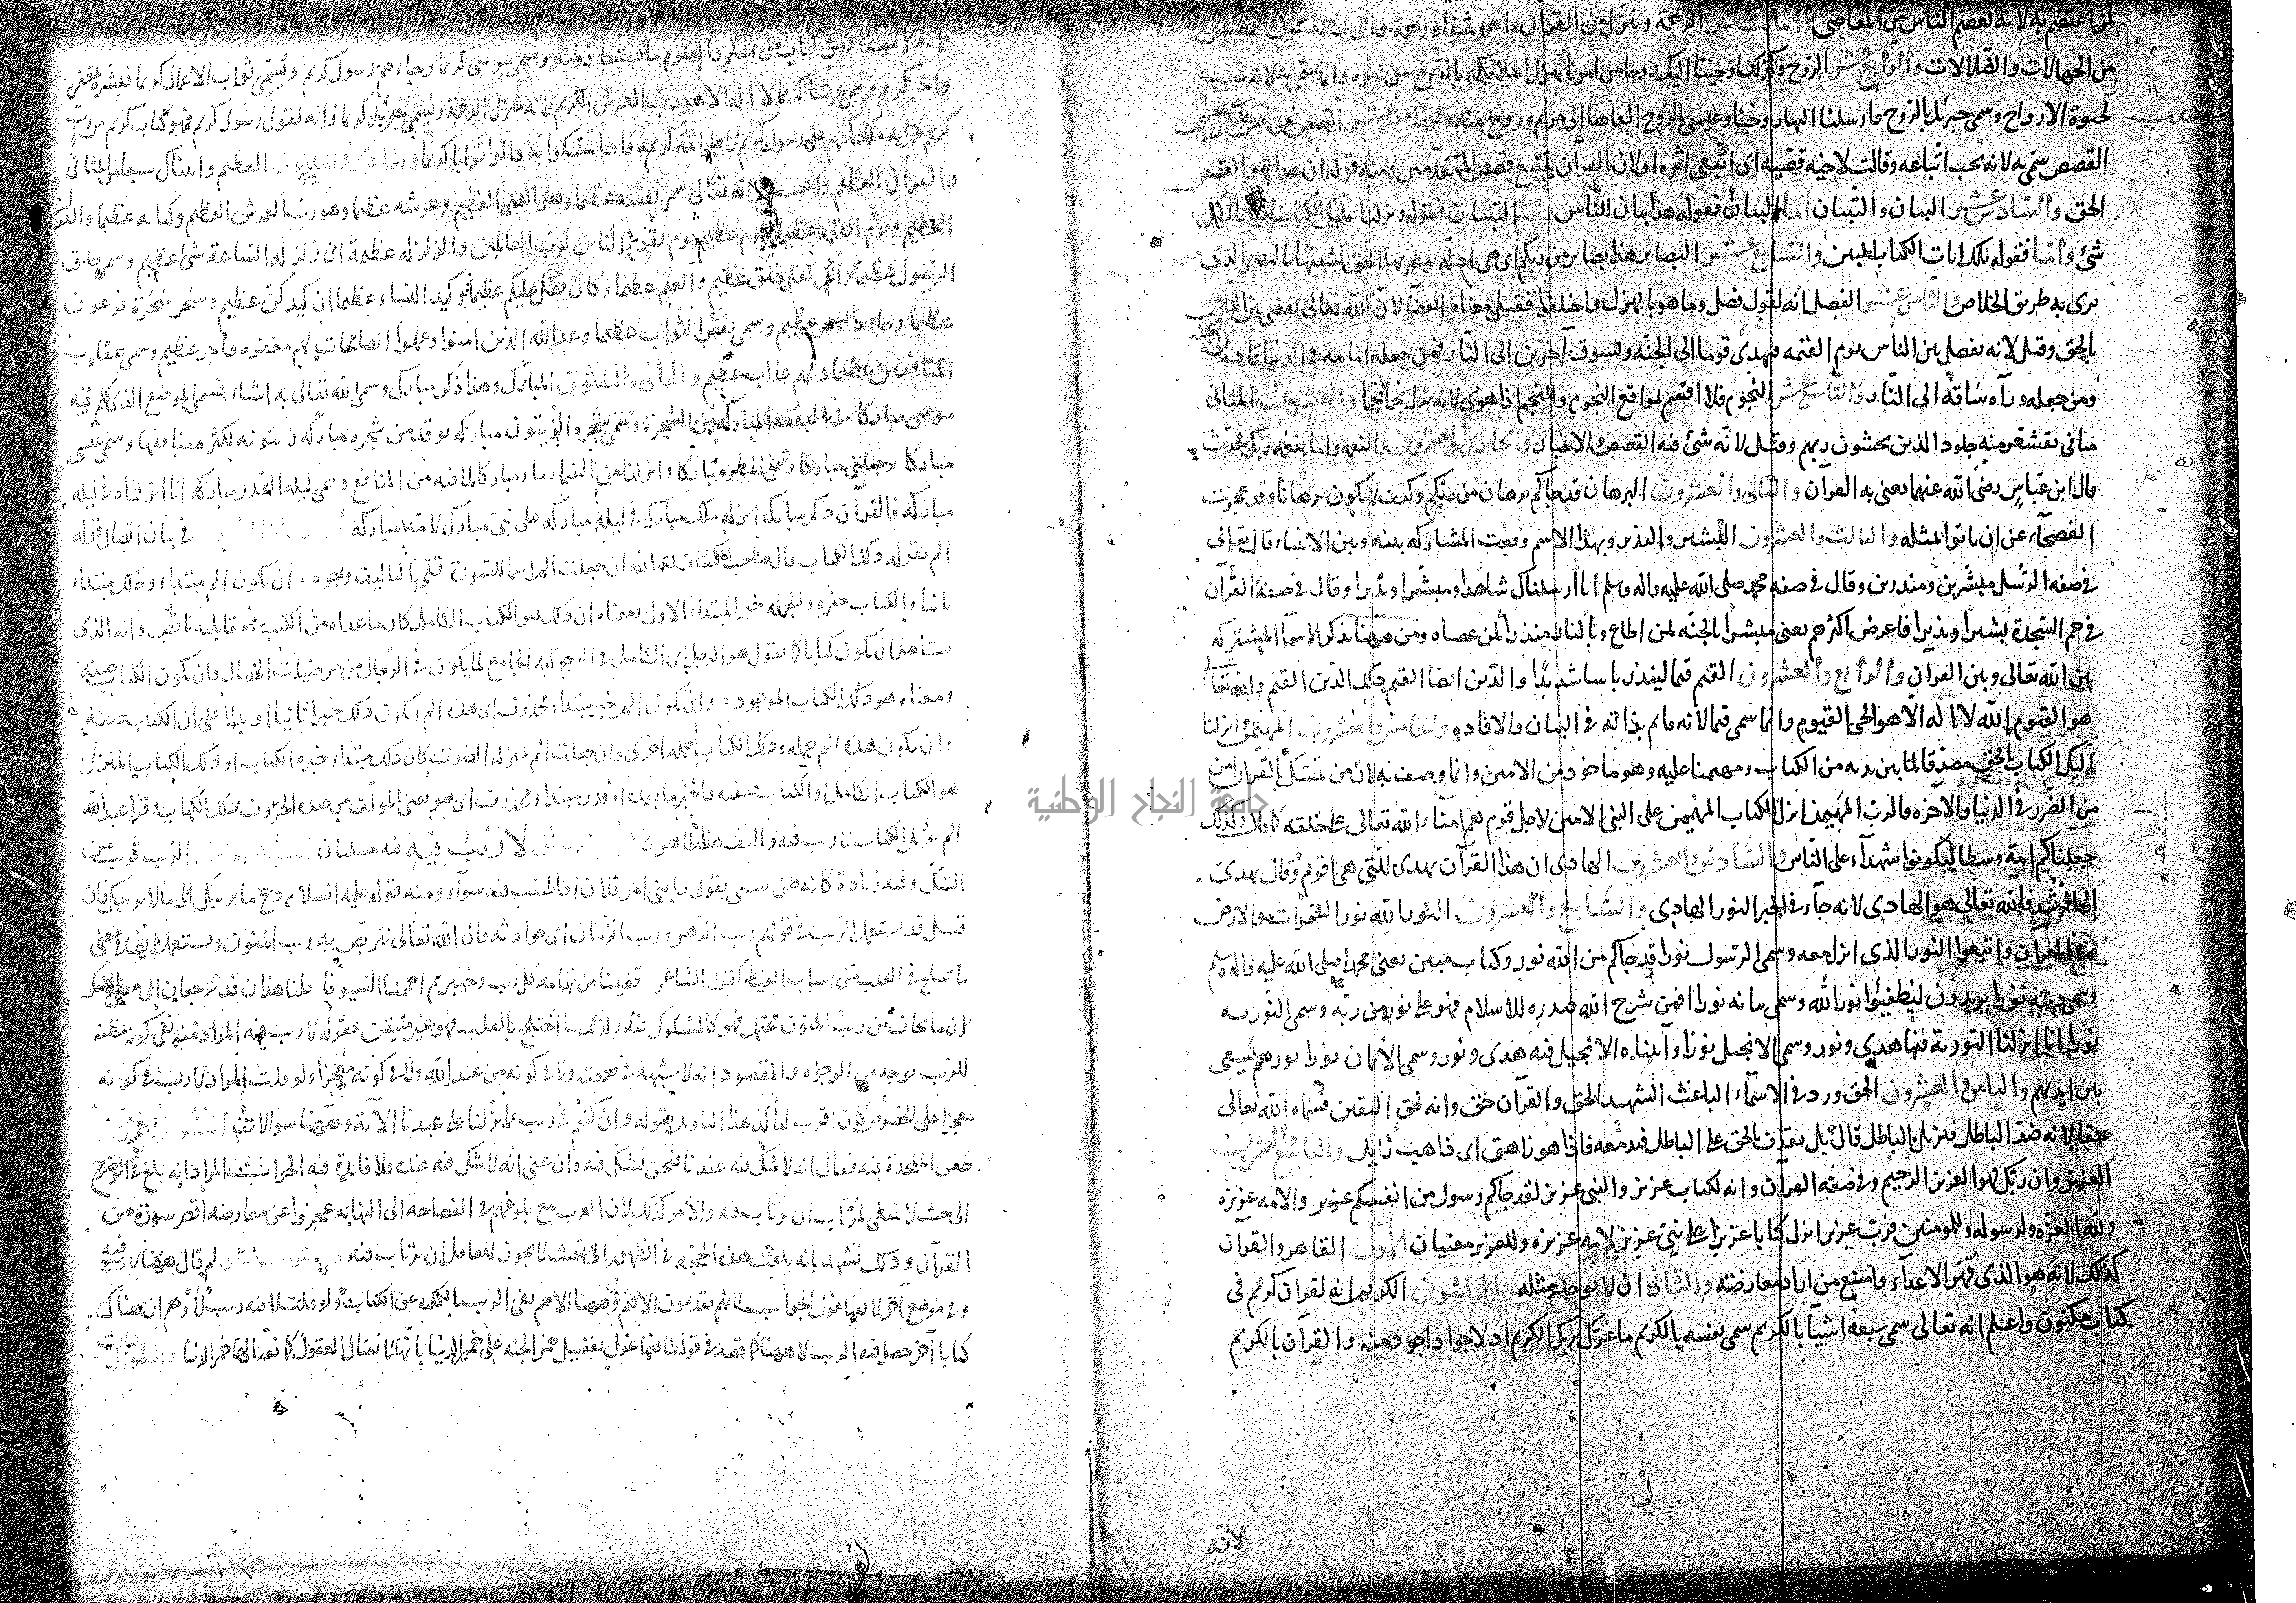 لمن اعتصم به لانه يعصم الناس من المعاصى والثالث عشر الرحمة وننزل من القرآن ما هو شفا ورحمة واى رحمة فوق التخليص
من الجهالات والضلالات والرابع عشر الروح وكذلك اوحينا اليك روحا من امرنا ينزل الملايكه بالروح من امره وانما سمى به لانه سبب
لحيوة الارواح وسمى جبرئل بالروح فارسلنا اليها روحنا وعيسى بالروح القاها الى مريم وروح منه والخامس عشر القصص نحن نقص عليك احسن
القصص سمى به لانه يجب اتباعه وقالت لاخته قصيه اى اتبعى اثره او لان القرآن يتتبع قصص المتقدمين ومنه قوله ان هذا لهو القصص
الحق والسادس عشر البيان والتبيان اما البيان فقوله هذا بيان للناس واما التبيان فقوله ونزلنا عليك الكتاب تبيانا لكل
شئ واما فقوله تلك ايات الكتاب المبين والسابع عشر البصاير هذا بصاير من ربكم اى هى ادلة يبصر بها الحق تشبيها بالبصر الذى
يرى به طريق الخلاص والثامن عشر الفصل انه لقول فصل وما هو بالهزل واختلفوا فقيل معناه القضا لان الله تعالى يقضى بين الناس
بالحق وقيل لانه يفصل بين الناس يوم القيمه فيهدى قوما الى الجنه ويسوق آخرين الى النار فمن جعله امامه فى الدنيا قاده الى الجنه
ومن جعله ورآه ساقه الى النار والتاسع عشر النجوم فلا اقسم بمواقع النجوم والنجم اذا هوى لانه نزل نجما نجما والعشرون المثانى
مثانى تقشعر منه جلود الذين يخشون ربهم وقيل لانه شئ فيه القصص والاخبار والحادى والعشرون النعمه واما بنعمة ربك فحدث
قال ابن عباس رضى الله عنهما يعنى به القرآن والثانى والعشرون البرهان قد جاكم برهان من ربكم وكيف لا يكون برهانا وقد عجزت
الفصحآء عن ان ياتوا بمثله والثالث والعشرون البشير والنذير وبهذا الاسم وقعت المشاركه بينه وبين الانبياء قال تعالى
فى صفه الرسل مبشرين ومنذرين وقال فى صفه محمد صلى الله عليه واله وسلم انا ارسلناك شاهدا ومبشرا ونذيرا وقال فى صفة القرآن
فى حم السجدة بشيرا ونذيرا فاعرض اكثرهم يعنى مبشرا بالجنه لمن اطاع وبالنار منذرا لمن عصاه ومن ههنا نذكر الاسما المشتركه
بين الله تعالى وبين القرآن والرابع والعشرون القيم قيما لينذر باسا شديدا والدين ايضا القيم ذلك الدين القيم والله تعالى
هو القيوم الله لا اله الا هو الحى القيوم وانما سمى قيما لانه قايم بذاته فى البيان والافاده والخامس والعشرون المهيمن وانزلنا
اليك الكتاب بالحق مصدقا لما بين يديه من الكتاب ومهيمنا عليه وهو ماخوذ من الامين وانما وصف به لان من تمسك بالقرآن امن
من الضرر فى الدنيا والآخره والرب المهيمن انزل الكتاب المهيمن على النبى الامين لاجل قوم هم امناء الله تعالى على خلقه كما قال وكذلك
جعلناكم امة وسطا لتكونوا شهدآء على الناس والسادس والعشرون الهادى ان هذا القرآن يهدى للتى هى اقوم وقال يهدى
الى الرشد والله تعالى هو الهادى لانه جآء فى الخبر النور الهادى والسابع والعشرون النور الله نور السموات والارض
واتبعوا النور الذى انزل معه وسمى الرسول نورا قد جاكم من الله نور وكتاب مبين يعنى محمد صلى الله عليه واله وسلم
وسمى دينه نورا يريدون ليطفئوا نور الله وسمى بيانه نورا افمن شرح الله صدره للاسلام فهو على نور من ربه وسمى التوريه
نورا انا انزلنا التورية فيها هدى ونور وسمى الانجيل نورا وآتيناه الانجيل فيه هدى ونور وسمى الايمان نورا نورهم يسعى
بين ايديهم والثامن والعشرون الحق ورد فى الاسمآء الباعث الشهيد الحق والقرآن حق وانه لحق اليقين فسماه الله تعالى
حقا لانه ضد الباطل فيزيل الباطل قال بل نقذف بالحق على الباطل فيدمغه فاذا هو زاهق اى ذاهب زايل والتاسع والعشرون
العزيز وان ربك لهو العزيز الرحيم وفى صفه القرآن وانه لكتاب عزيز والنبى عزيز لقد جاكم رسول من انفسكم عزيز والامه عزيزه
ولله العزه ولرسوله وللمومنين فرب عزيز انزل كتابا عزيزا على نبى عزيز لامه عزيزه وللعزيز معنيان الاول القاهر والقرآن
كذلك لانه هو الذى قهر الاعدآء وامتنع من اراد معارضته والثانى ان لا يوجد مثله والثلثون الكريم انه لقران كريم فى
كتاب مكنون واعلم انه تعالى سمى سبعة اشيآ بالكريم سمى نفسه بالكريم ما غرك بربك الكريم اذ لا جواد اجود منه والقرآن بالكريم
لانه
لانه لا يستفاد من كتاب من الحكم والعلوم ما يستفاد منه وسمى موسى كريما وجاءهم رسول كريم وسمى ثواب الاعمال كريما فبشره بمغفره
واجر كريم وسمى عرشا كريما لا اله الا هو رب العرش الكريم لانه منزل الرحمة وسمى جبرئل كريما وانه لقول رسول كريم فهو كتاب كريم من رب
كريم نزل به ملك كريم على رسول كريم لاجل امة كريمة فاذا تمسكوا به نالوا ثوابا كريما والحادى والثلثون العظيم ولقد اتيناك سبعا من المثانى
والقرآن العظيم واعلم انه تعالى سمى نفسه عظيما وهو العلى العظيم وعرشه عظيما وهو رب العرش العظيم وكتابه عظيما والقرآن
العظيم ويوم القيمه عظيما ليوم عظيم يوم يقوم الناس لرب العالمين والزلزله عظيمة ان زلزله الساعة شئ عظيم وسمى خلق
الرسول عظيما وانك لعلى خلق عظيم والعلم عظيما وكان فضل الله عليك عظيما وكيد النساء عظيما ان كيدكن عظيم وسحر سحرة فرعون
عظيما وجاءوا بسحر عظيم وسمى نفس الثواب عظيما وعد الله الذين امنوا وعملوا الصالحات لهم مغفره واجر عظيم وسمى عقاب
المنافقين عظيما ولهم عذاب عظيم والثانى والثلثون المبارك وهذا ذكر مبارك وسمى الله تعالى به اشياء فسمى الموضع الذى كلم فيه
موسى مباركا فى البقعه المباركه من الشجرة وسمى شجره الزيتون مباركه يوقد من شجره مباركه زيتونه لكثرة منافعها وسمى عيسى
مباركا وجعلنى مباركا وسمى المطر مباركا وانزلنا من السماء ماء مباركا لما فيه من المنافع وسمى ليله القدر مباركه انا انزلناه فى ليله
مباركه فالقرآن ذكر مبارك انزله ملك مبارك فى ليله مباركه على نبى مبارك لامه مباركه فى بيان اتصال قوله
الم بقوله ذلك الكتاب قال صاحب الكشاف رحمه الله ان جعلت الم اسما للسورة ففى التاليف وجوه ان يكون الم مبتداء وذلك مبتداء
ثانيا والكتاب خبره والجمله خبر المبتداء الاول ومعناه ان ذلك هو الكتاب الكامل كان ما عداه من الكتب فى مقابلته ناقص وانه الذى
يستاهل ان يكون كتابا كما يقول هو الرجل اى الكامل فى الرجوليه الجامع لما يكون فى الرجال من مرضيات الخصال وان يكون الكتاب صفه
ومعناه هو ذلك الكتاب الموعود وان يكون الم خبر مبتداء محذوف اى هذه الم ويكون ذلك خبرا ثانيا او بدلا على ان الكتاب صفه
وان يكون هذه الم جمله وذلك الكتاب جمله اخرى وان جعلت الم بمنزله الصوت كان ذلك مبتداء خبره الكتاب او ذلك الكتاب المنزل
هو الكتاب الكامل او الكتاب صفه والخبر ما بعده او قدر مبتداء محذوف اى هو يعنى المولف من هذه الحروف ذلك الكتاب وقرا عبد الله
الم تنزيل الكتاب لا ريب فيه وتاليف هذا ظاهر تعالى لا ريب فيه فيه مسلتان الريب قريب من
الشك وفيه زيادة كانه ظن سوء يقول رابنى امر فلان اذا ظننت به سوآء ومنه قوله عليه السلام دع ما يريبك الى ما لا يريبك فان
قيل قد يستعمل الريب فى قولهم ريب الدهر وريب الزمان اى حوادثه قال الله تعالى نتربص به ريب المنون ويستعمل ايضا فى معنى
ما يختلج فى القلب من اسباب الغيظ كقول الشاعر قضينا من تهامه كل ريب وخيبر ثم اجممنا السيوفا قلنا هذان قد يرجعان الى معنى الشك
لان ما يخاف من ريب المنون محتمل فهو كالمشكوك فيه وكذلك ما اختلج بالقلب فهو غير متيقن فقوله لا ريب فيه المراد منه نفى كونه مظنه
للريب بوجه من الوجوه والمقصود انه لا شبهه فى صحته ولا فى كونه من عند الله ولا فى كونه معجزا ولو قلت المراد لا ريب فى كونه
معجزا على الخصوص كان اقرب لتاكد هذا التاويل بقوله وان كنتم فى ريب مما نزلنا على عبدنا الآية وههنا سوالات
طعن الملحدة فيه فقال انه لا شك فيه عندنا فنحن نشك فيه وان عنى انه لا شك فيه عنده فلا فايدة فيه الجواب المراد انه بلغ فى الوضوح
الى حيث لا ينبغى لمرتاب ان يرتاب فيه والامر كذلك لان العرب مع بلوغهم فى الفصاحه الى النهايه عجزوا عن معارضه اقصر سورة من
القرآن وذلك يشهد بانه بلغت هذه الحجه فى الظهور الى حيث لا يجوز للعاقل ان يرتاب فيه لم قال ههنا لا ريب فيه
وفى موضع آخر لا فيها غول الجواب لانهم يقدمون الاهم فالاهم وههنا الاهم نفى الريب بالكليه عن الكتاب ولو قلت لا فيه ريب لاوهم ان هناك
كتابا آخر حصل فيه الريب لا ههنا كما قصد فى قوله لا فيها غول تفضيل خمر الجنه على خمور الدنيا بانها لا تغتال العقول كما تغتالها خمر الدنيا